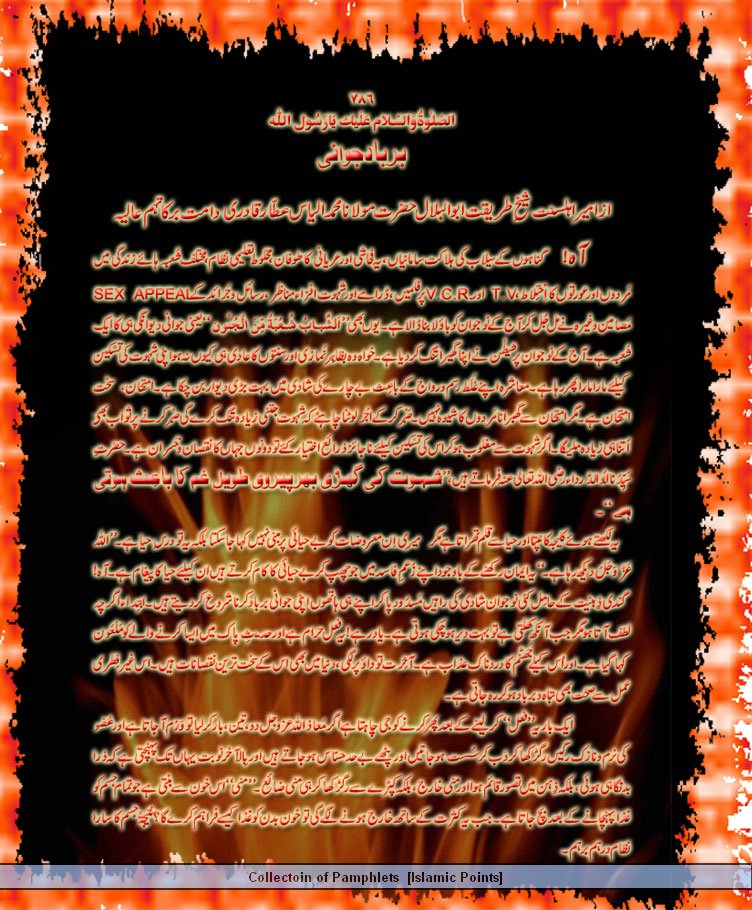 ٧٨٦
الصلوٰۃ والسلام علیک یا رسول اللہ
برباد جوانی
از امیر اہلسنت شیخ طریقت ابو البلال حضرت مولانا محمد الیاس عطار قادری دامت برکاتہم عالیہ
آہ! گناہوں کے سیلاب کی ہلاکت سامانیاں، یہ فحاشی اور عریانی کا طوفان مخلوط تعلیمی نظام مختلف شعبہ ہائے زندگی میں
مردوں اور عورتوں کا اختلاط، T.V اور V.C.R پر فلمیں، ڈرامے اور شہوت افزاء مناظر، رسائل و جرائد کے SEX APPEAL
مضامین وغیرہ نے مل جل کر آج کے نوجوان کو باؤلا بنا ڈالا ہے۔ یوں بھی "الشباب شعبة من الجنون" یعنی جوانی دیوانگی ہی کا ایک
شعبہ ہے۔ آج کے نوجوان پر شیطٰن نے اپنا گھیرا تنگ کر دیا ہے۔ خواہ وہ بظاہر نمازی اور سنتوں کا عادی ہی کیوں نہ ہو اپنی شہوت کی تسکین
کیلئے مارا مارا پھر رہا ہے۔ معاشرہ اپنے غلط رسم و رواج کے باعث بے چارے کی شادی میں بہت بڑی دیوار بن چکا ہے۔ امتحان، سخت
امتحان ہے۔ مگر امتحان سے گھبرانا مردوں کا شیوہ نہیں۔ صبر کر کے اجر لوٹنا چاہئے کہ شہوت جتنی زیادہ تنگ کرے گی صبر کرنے پر ثواب بھی
اتنا ہی زیادہ ملیگا۔ اگر شہوت سے مغلوب ہو کر اس کی تسکین کیلئے ناجائز ذرائع اختیار کئے تو دونوں جہاں کا نقصان و خسران ہے۔ حضرت
سیدنا ابو الدرداء رضی اللہ تعالیٰ عنہ فرماتے ہیں، "شہوت کی گھڑی بھر پیروی طویل غم کا باعث ہوتی
ہے"۔
یہ لکھتے ہوئے کلیجہ کانپتا اور حیا سے قلم تھراتا ہے مگر میری ان معروضات کو بے حیائی پر مبنی نہیں کہا جا سکتا بلکہ یہ تو درس حیا ہے۔ "اللہ
عزوجل دیکھ رہا ہے۔" یہ ایمان رکھنے کے باوجود اپنے زعم فاسد میں جو چھپ کر بے حیائی کا کام کرتے ہیں ان کیلئے حیا کا پیغام ہے۔ آہ!
گندی ذہنیت کے حامل کئی نوجوان شادی کی راہیں مسدود پا کر اپنے ہی ہاتھوں اپنی جوانی برباد کرنا شروع کر دیتے ہیں۔ ابتداء اگرچہ
لطف آتا ہو مگر جب آنکھ کھلتی ہے تو بہت دیر ہو چکی ہوتی ہے۔ یاد رہے! یہ فعل حرام ہے اور حدیث پاک میں ایسا کرنے والے کو ملعون
کہا گیا ہے۔ اور اس کیلئے جہنم کا دردناک عذاب ہے۔ آخرت تو داؤ پر لگی، دنیا میں بھی اس کے سخت ترین نقصانات ہیں۔ اس غیر فطری
عمل سے صحت بھی تباہ و برباد ہو کر رہ جاتی ہے۔
ایک بار یہ "فعل" کر لینے کے بعد پھر کرنے کو جی چاہتا ہے اگر معاذ اللہ عزوجل دو، تین، بار کر لیا تو ورم آ جاتا ہے اور عضو
کی نرم و نازک رگیں رگڑ کھا کر دب کر سست ہو جاتیں اور پٹھے بے حد حساس ہو جاتے ہیں اور بالآخر نوبت یہاں تک پہنچتی ہے کہ ذرا
بدنگاہی ہوئی، بلکہ ذہن میں تصور قائم ہوا اور منی خارج، بلکہ کپڑے سے رگڑ کھا کر ہی منی ضائع۔ "منی" اس خون سے بنتی ہے جو تمام جسم کو
غذا پہنچانے کے بعد بچ جاتا ہے۔ جب یہ کثرت کے ساتھ خارج ہونے لگے گی تو خون بدن کو غذا کیسے فراہم کرے گا؟ نتیجۃً جسم کا سارا
نظام درہم برہم۔
Collectoin of Pamphlets [Islamic Points]